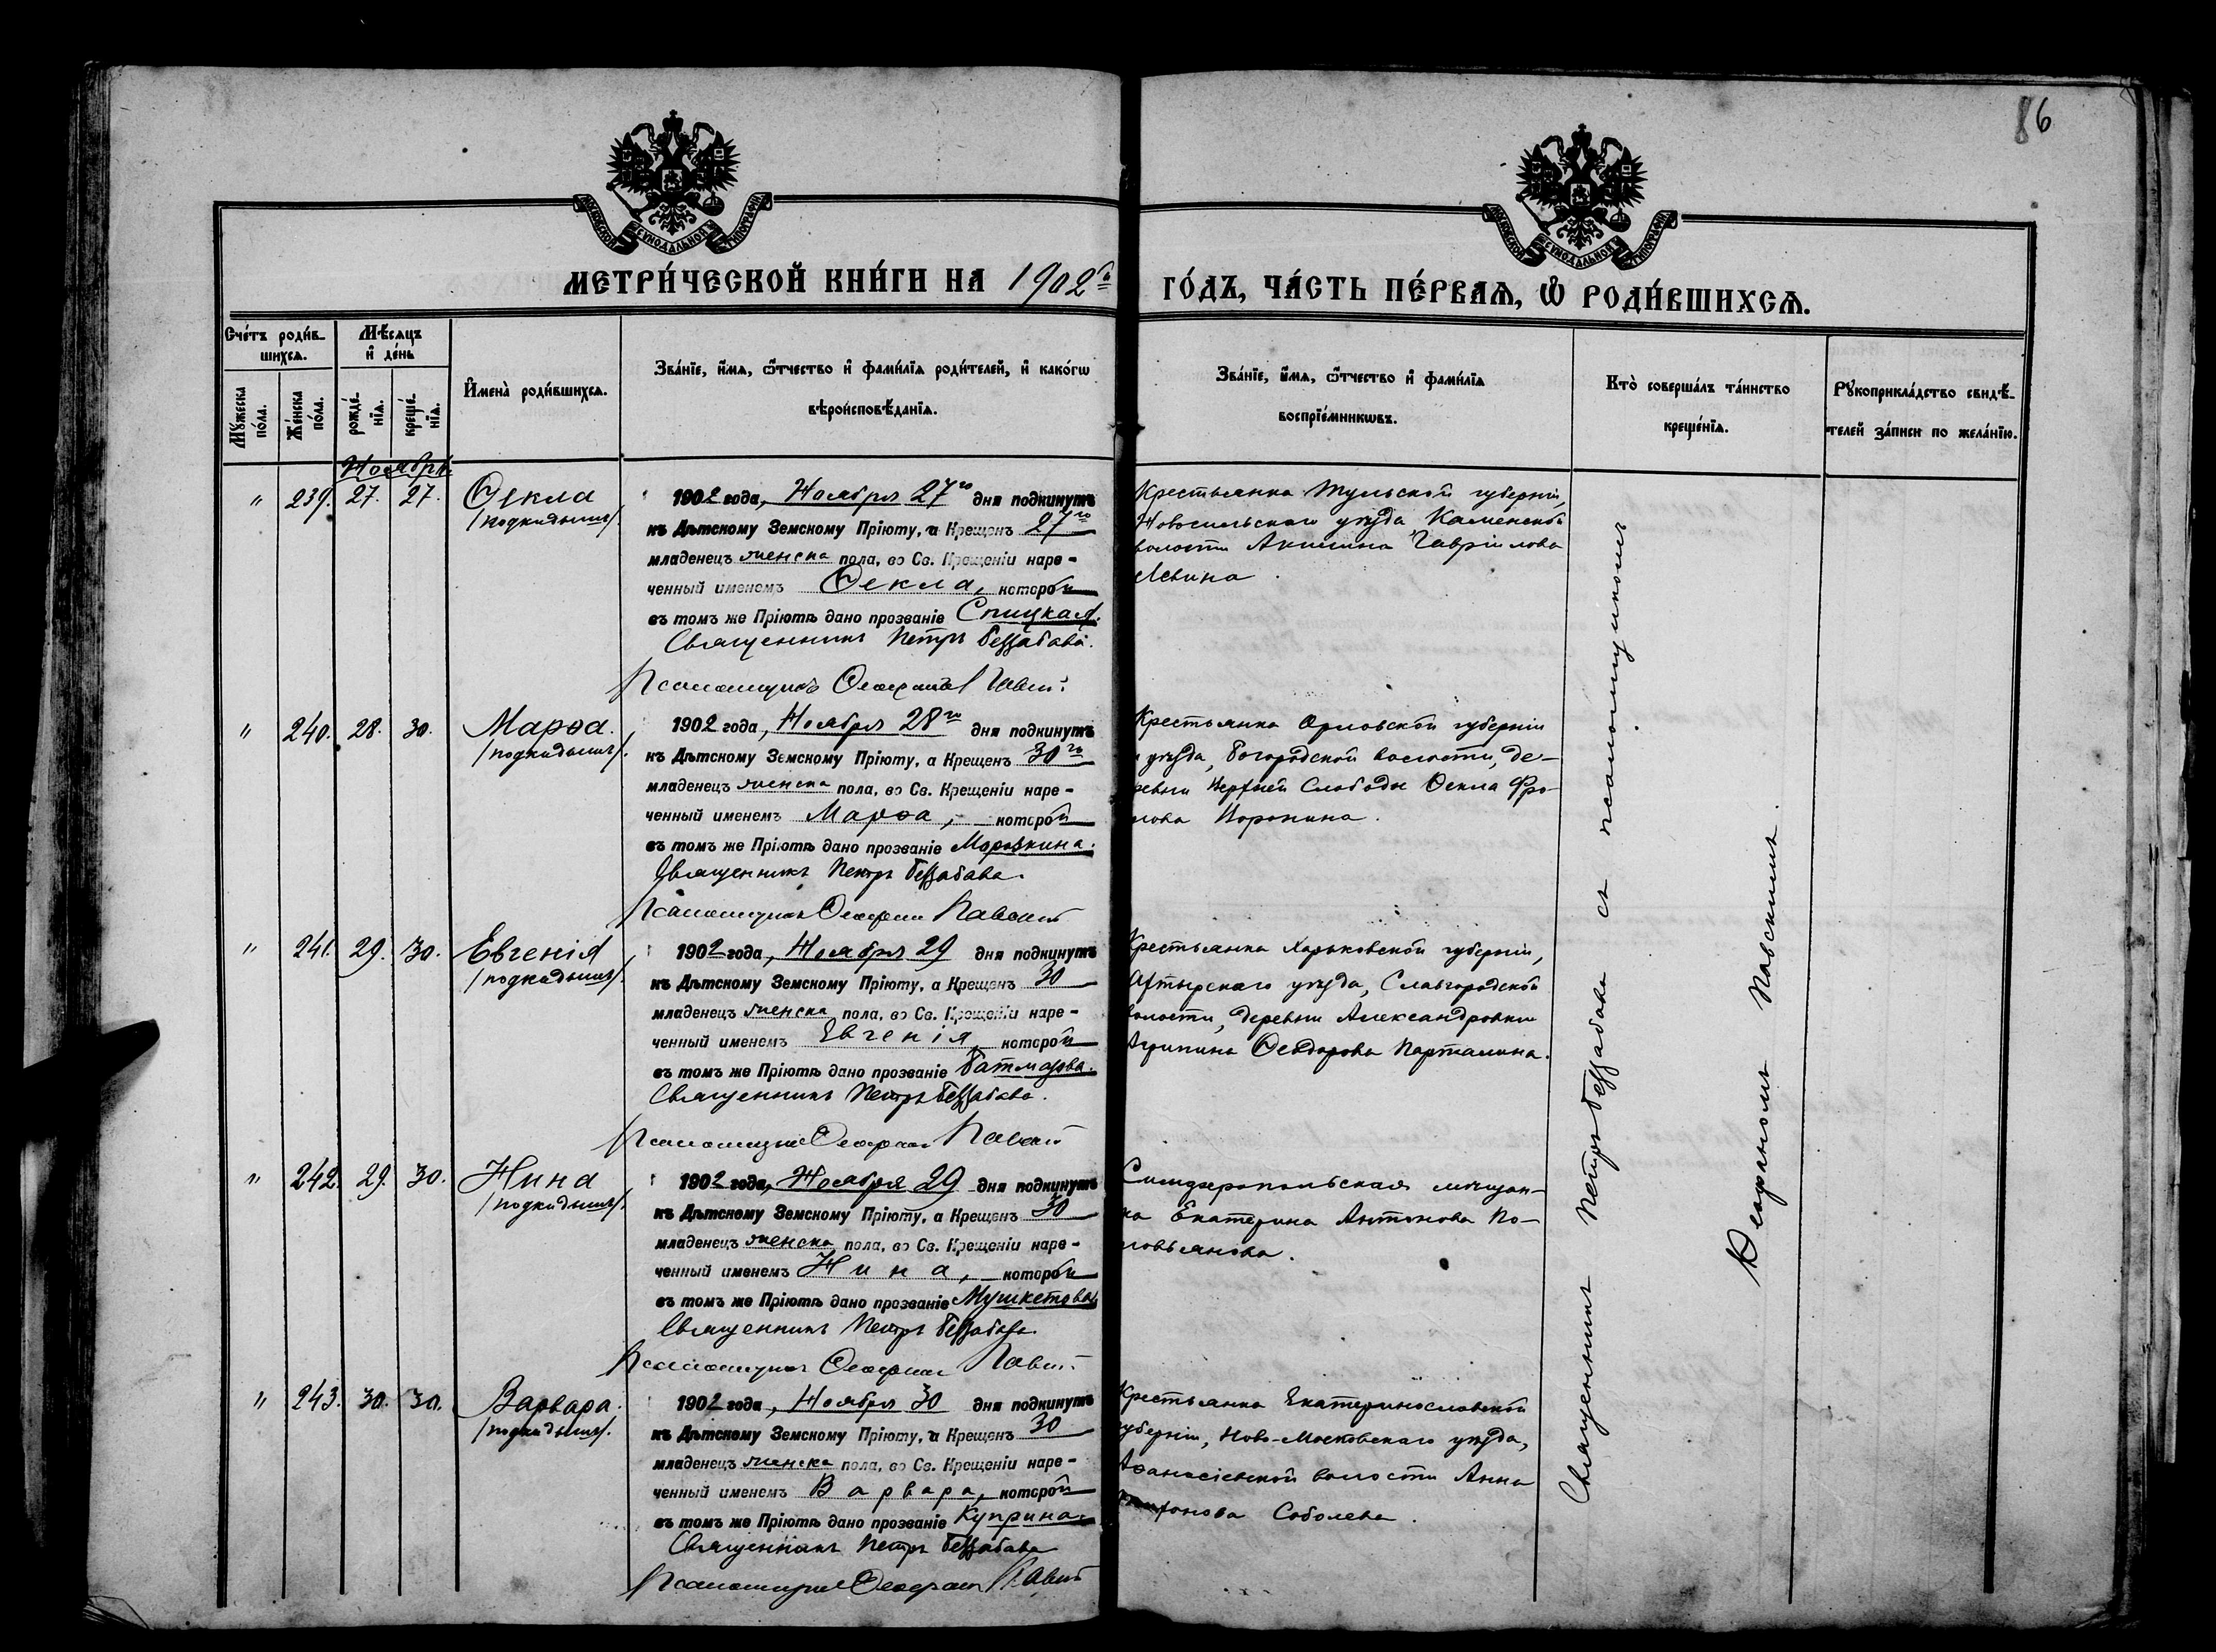 86
МОСКОВСКОЙ СУНОДАЛЬНОЙ ТИПОГРАФІИ
МОСКОВСКОЙ СУНОДАЛЬНОЙ ТИПОГРАФІИ
МЕТРИ́ЧЕСКОЙ КНИ́ГИ НА 1902й
ГО́ДЪ, ЧА́СТЬ ПЕ́РВАѦ, Ѡ҆ РОДИ́ВШИХСѦ.
Сче́тъ роди́в-
шихсѧ.
Мѣ́сѧцъ
и҆ де́нь
Мꙋ́жеска
по́ла.
Же́нска
по́ла.
рожде́-
нїѧ.
креще́-
нїѧ.
И҆мена̀ роди́вшихсѧ.
Зва́нїе, и҆́мѧ, ѻ҆́тчество и҆ фами́лїѧ роди́телей, и҆ како́гѡ
вѣроисповѣ́данїѧ.
Зва́нїе, и҆́мѧ, ѻ҆́тчество и҆ фами́лїѧ
воспрїе́мникѡвъ.
Кто̀ соверша́лъ та́инство
креще́нїѧ.
Рꙋкоприкла́дство свидѣ́-
телей за́писи по жела́нїю.
Ноябрь
" 239. 27. 27. Ѳекла
/подкидышъ/.
1902 года, Ноября 27го дня подкинутъ
къ Дѣтскому Земскому Пріюту, а Крещенъ 27го
младенецъ женска пола, во Св. Крещеніи наре-
ченный именемъ Ѳекла, которой
въ томъ же Пріютѣ дано прозваніе Спицкая.
Священникъ Петръ Беззабава.
Псаломщикъ Ѳеофанъ
Крестьянка Тульской губерніи,
Новосильскаго уѣзда Каменской
волости Акилина Гавріилова
Левина
" 240. 28. 30. Марѳа.
/подкидышъ/.
1902 года, Ноября 28го дня подкинутъ
къ Дѣтскому Земскому Пріюту, а Крещенъ 30го
младенецъ женска пола, во Св. Крещеніи наре-
ченный именемъ Марѳа, которой
въ томъ же Пріютѣ дано прозваніе Моровкина.
Священникъ Петръ Беззабава.
Псаломщикъ Ѳеофанъ Павскій
Крестьянка Орловской губерніи
и уѣзда, Богородской волости, де-
ревни Верхней Слободы Ѳекла Фро-
лова Воронина.
" 241. 29. 30. Евгенія
/подкидышъ/.
1902 года, Ноября 29 дня подкинутъ
къ Дѣтскому Земскому Пріюту, а Крещенъ 30
младенецъ женска пола, во Св. Крещеніи наре-
ченный именемъ Евгенія, которой
въ томъ же Пріютѣ дано прозваніе Батмазова.
Священникъ Петръ Беззабава.
Псаломщикъ Ѳеофанъ Павскій
Крестьянка Харьковской губерніи,
Ахтырскаго уѣзда, Славгородской
волости, деревни Александровки
Агрипина Ѳеодорова Парталина.
" 242. 29. 30. Нина
/подкидышъ/.
1902 года, Ноября 29 дня подкинутъ
къ Дѣтскому Земскому Пріюту, а Крещенъ 30
младенецъ женска пола, во Св. Крещеніи наре-
ченный именемъ Нина, которой
въ томъ же Пріютѣ дано прозваніе Мушкетова.
Священникъ Петръ Беззабава.
Псаломщикъ Ѳеофанъ
Симферопольская мѣщан-
ка Екатерина Антонова По-
" 243. 30. 30. Варвара.
/подкидышъ/.
1902 года, Ноября 30 дня подкинутъ
къ Дѣтскому Земскому Пріюту, а Крещенъ 30
младенецъ женска пола, во Св. Крещеніи наре-
ченный именемъ Варвара, которой
въ томъ же Пріютѣ дано прозваніе Куприна.
Священникъ Петръ Беззабава
Псаломщикъ Ѳеофанъ Павскій
Крестьянка Екатеринославской
губерніи, Ново-Московскаго уѣзда,
Аѳанасіевской волости Анна
Соболева.
Священникъ Петръ Беззабава съ псаломщикомъ
Ѳеофаномъ Павскимъ.